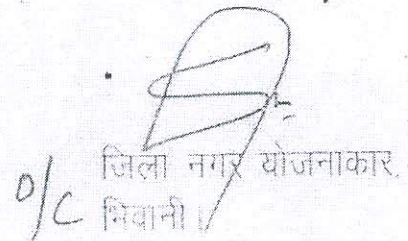 जिला नगर योजनाकार,
O/C भिवानी।